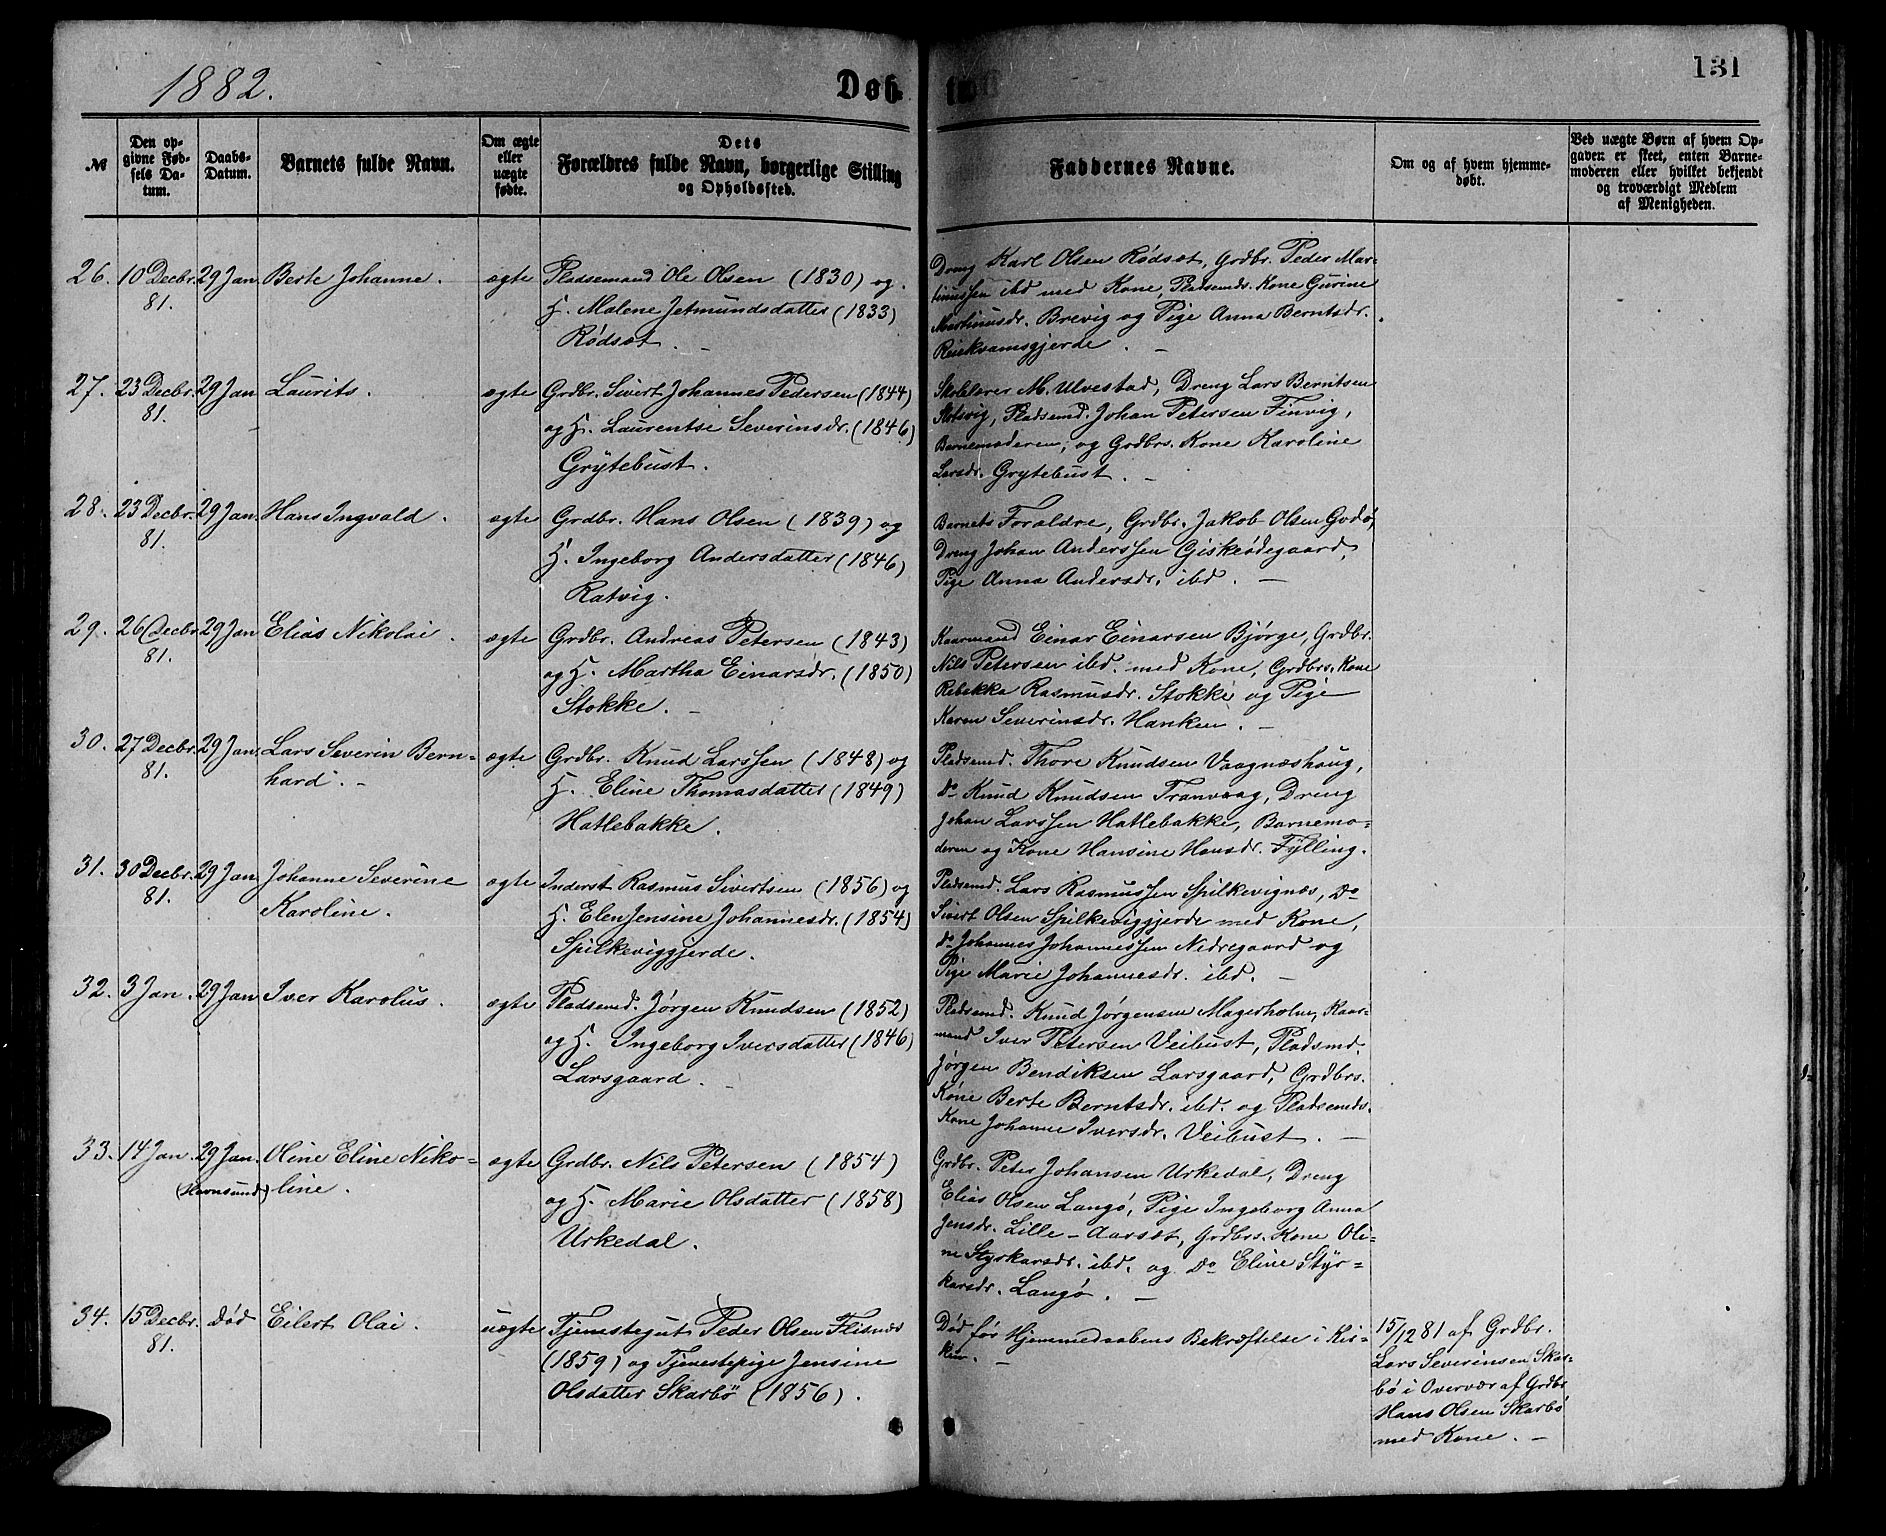 1882.
Døb-
te.
131
№
Den op-
givne Fød-
sels Da-
tum.
Daabs-
Datum.
Barnets fulde Navn.
Om ægte
eller
uægte
fødte.
Dets
Forældres fulde Navn, borgerlige Stilling
og Opholdssted.
Faddernes Navne.
Om og af hvem hjemme-
døbt.
Ved uægte Børn af hvem Op-
gaven er skeet, enten Barne-
moderen eller hvilket bekjendt
og troværdigt Medlem
af Menigheden.
26. 10 Decbr. 29 Jan. Berte Johanne. ægte Pladsemand Ole Olsen (1830) og
81. H. Malene Jetmundsdatter (1833)
Rødsæt. –
Dreng Karl Olsen Rødsæt, Grdbr. Peder Mar-
tinussen ibd med Kone, Pladsmds. Kone Gurine
Martinusdr. Brevig og Pige Anna Berntsdr.
Reiekvamsgjerde. –
27. 23 Decbr. 29 Jan Laurits. ægte Grdbr. Sivert Johannes Pedersen (1844)
81. og H. Laurentse Severinsdr. (1846)
Grytebust.
Skolelærer M. Ulvestad, Dreng Lars Berntsen
Slotsvig, Pladsemd. Johan Petersen Finvig,
Barnemoderen, og Grdbrs. Kone Karoline
Larsdr. Grytebust. –
28. 23 Decbr. 29 Jan. Hans Ingvald. ægte Grdbr. Hans Olsen (1839) og
81. H. Ingeborg Andersdatter (1846)
Ratvig.
Barnets Forældre, Grdbr. Jakob Olsen Godø,
Dreng Johan Anderssen Giskeødegaard,
Pige Anna Andersdr. ibd. –
29. 26 Decbr 29 Jan Elias Nikolai. ægte Grdbr. Andreas Petersen (1843)
81. og H. Martha Einarsdr. (1850)
Stokke. –
Kaarmand Einar Einarsen Bjørge, Grdbr.
Nils Petersen ibd. med Kone, Grdbrs. Kone
Rebekka Rasmusdr. Stokke og Pige
Karen Severinsdr. Hanken. –
30. 27 Decbr. 29 Jan. Lars Severin Bern- ægte Grdbr. Knud Larssen (1848) og
81. hard. – H. Eline Thomasdatter (1849)
Hatlebakke.
Pladsemd. Thore Knudsen Vaagnæshaug,
Do Knud Knudsen Tranvaag, Dreng
Johan Larssen Hatlebakke, Barnemo-
deren og Kone Hansine Hansdr. Fylling.
31. 30 Decbr. 29 Jan. Johanne Severine ægte Inderst Rasmus Sivertsen (1856) og
81. Karoline. H. Elen Jensine Johannesdr. (1854)
Spilkeviggjerde.
Pladsemd. Lars Rasmussen Spilkevignæs, Do
Sivert Olsen Spilkeviggjerde med Kone,
do Johannes Johannessen Nedregaard og
Pige Marie Johannesdr. ibd. –
32. 3 Jan. 29 Jan Iver Karolus. ægte Pladsemd. Jørgen Knudsen (1852)
og H. Ingeborg Iversdatter (1846)
Larsgaard. –
Pladsemd. Knud Jørgensen Magerholm, Kaar-
mand Iver Petersen Veibust, Pladsmd.
Jørgen Bendiksen Larsgaard, Grdbrs.
Kone Berte Berntsdr. ibd. og Pladsemds.
Kone Johanne Iversdr. Veibust. –
33. 14 Jan. 29 Jan. Oline Eline Niko- ægte Grdbr. Nils Petersen (1854)
(Havnsund) line. og H. Marie Olsdatter (1858)
Urkedal.
Grdbr. Peter Johansen Urkedal, Dreng
Elias Olsen Langø, Pige Ingeborg Anna
Jensdr. Lille-Aarsæt, Grdbrs. Kone Oli-
ne Styrkarsdr. ibd. og Do Eline Styr-
karsdr. Langø. –
34. 15 Decbr. død Eilert Olai. uægte Tjenestegut Peder Olsen Flisnæs
81. (1859) og Tjenestepige Jensine
Olsdatter Skarbø (1856).
Død før Hjemmedaabens Bekræftelse i Kir-
ken. –
15/12 81 af Grdbr.
Lars Severinsen Skar-
bø i Overvær af Grdbr
Hans Olsen Skarbø
med Kone. –